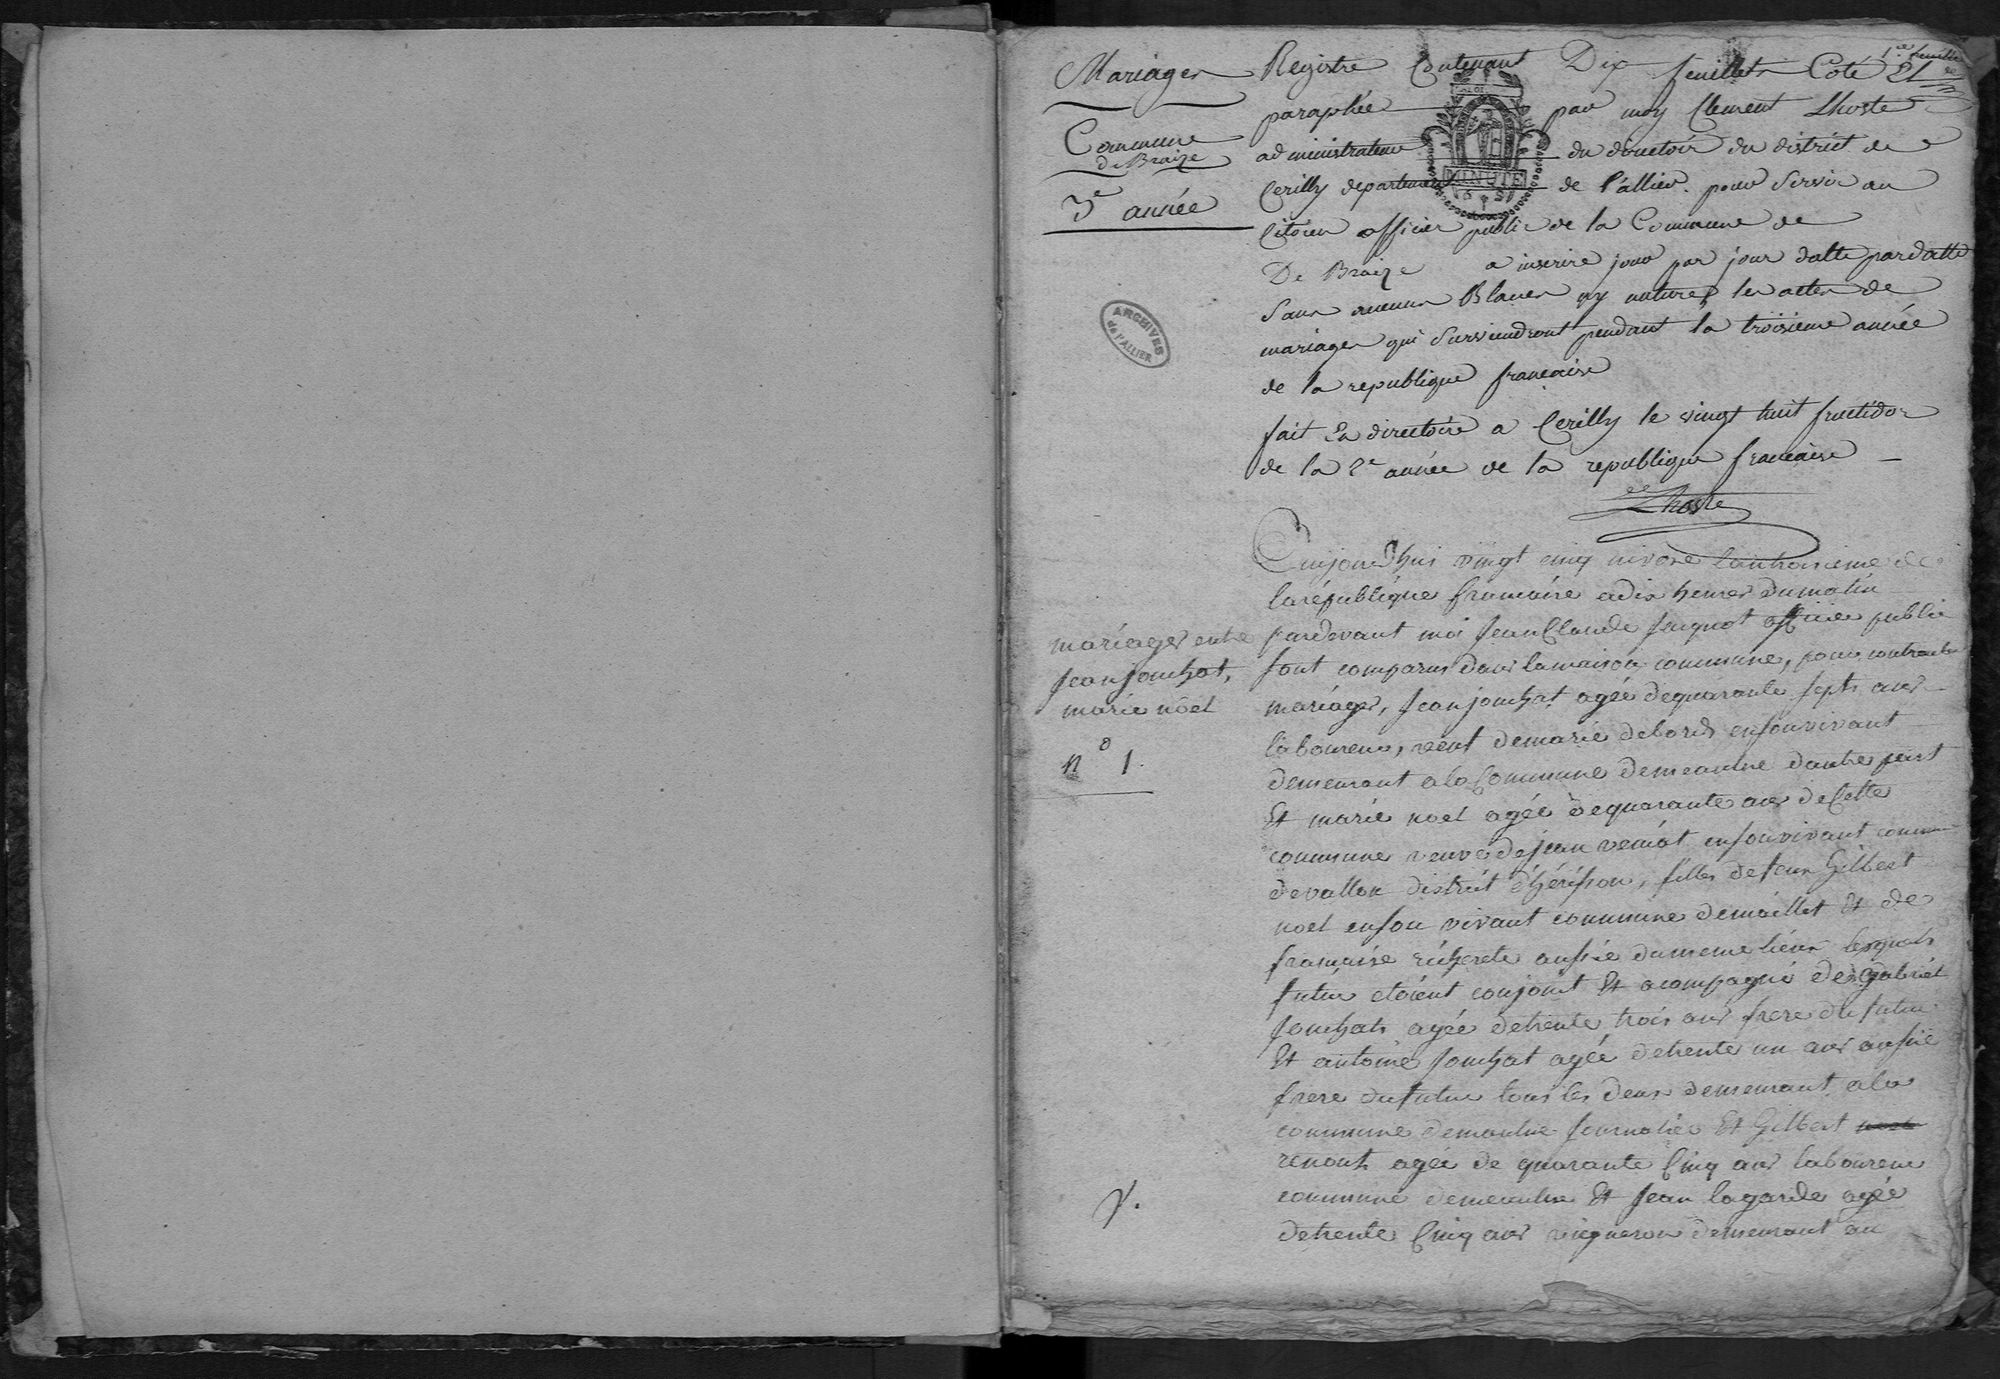 Mariages
Commune
de Braize
3e année
1er feuillet
Registre Contenant Dix feuillets Coté Et
paraphée par moy Clement Lhoste
administrateur du directoir du district de
Cerilly departement de l'allier. pour Servir au
Citoien officier public de la Commune de
De Braize a inscrire jour par jour datte par datte
Sans aucuns Blancs ny les actes de
mariages qui Surviendront pendant la troisieme année
de la republique francaise
fait En directoire a Cerilly le vingt huit fructidor
de la 2e année de la republique francaise
Lhoste
MINUTE
ARCHIVES
de l'ALLIER
mariages entre
jean jouhat,
marie nöel
no 1.
aujourdhui vingt cinq nivose lantroisieme de
larépublique francaise adix heures dumatin
pardevant moi jean Claude officier public
sont comparus dans lamaison commune, pour contracter
mariages, jean jouhat agée dequarante septs ans
laboureur, veuf demarie debords ensonvivant
demeurant ala Commune demeaulne dautre part
Et marie noel agée dequarante ans deCette
commune veuve dejean ensonvivant commune
devallon district d'hérisson, filles defeux Gilbert
noel enson vivant commune demaillet Et de
francoise aussie dumeme lieux lesquels
futur etoient conjoint Et acompagné de Gabriel
jouhats agée detrente trois ans frere dufutur
Et antoine jouhat agée detrente un ans aussie
frere dufutur tous les deux demeurant ala
commune demeaulne journalier Et Gilbert
renoux agée de quarante Cinq ans laboureur
commune demeaulne Et jean lagarde agée
detrente Cinq ans vigneron demeurant au